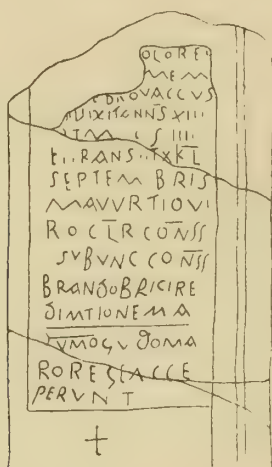 OLORE
MEM
EBROVACCVS
VIXITANNSXIII
TM S IIII
TRANS TXKL
SEPTEMBRIS
MAVVRTIOVI
ROCLRCONSS
SVBVNCCONSS
BRANDOBRICIRE
DIMTIONEMA
DVMOGVDOMA
ROREGEACCE
PERVNT